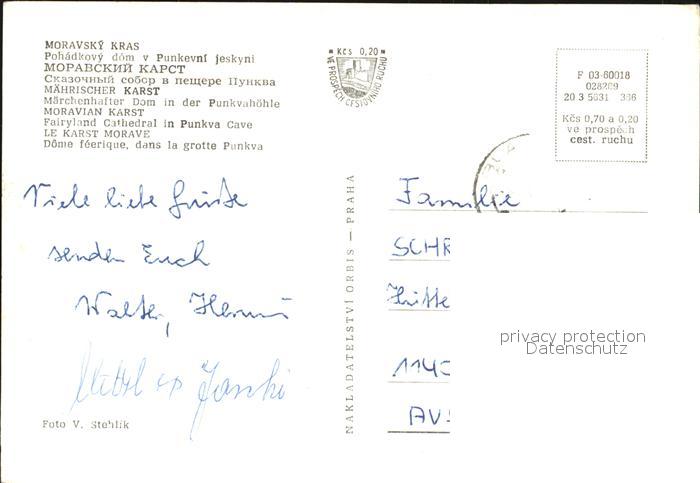 MORAVSKÝ KRAS
Pohádkový dóm v Punkevní jeskyni
МОРАВСКИЙ КАРСТ
Сказочный собор в пещере Пунква
MÄHRISCHER KARST
Märchenhafter Dom in der Punkvahöhle
MORAVIAN KARST
Fairyland Cathedral in Punkva Cave
LE KARST MORAVE
Dôme féerique, dans la grotte Punkva
Kčs 0,20
VE PROSPĚCH CESTOVNÍHO RUCHU
F 03-60018
028209
20 3 5031 306
Kčs 0,70 a 0,20
ve prospěch
cest. ruchu
Viele liebe Grüße
senden Euch
Walter,
Foto V. Stehlík
NAKLADATELSTVÍ ORBIS — PRAHA
Familie
SCHR
Hütte
1143
AUS
privacy protection
Datenschutz